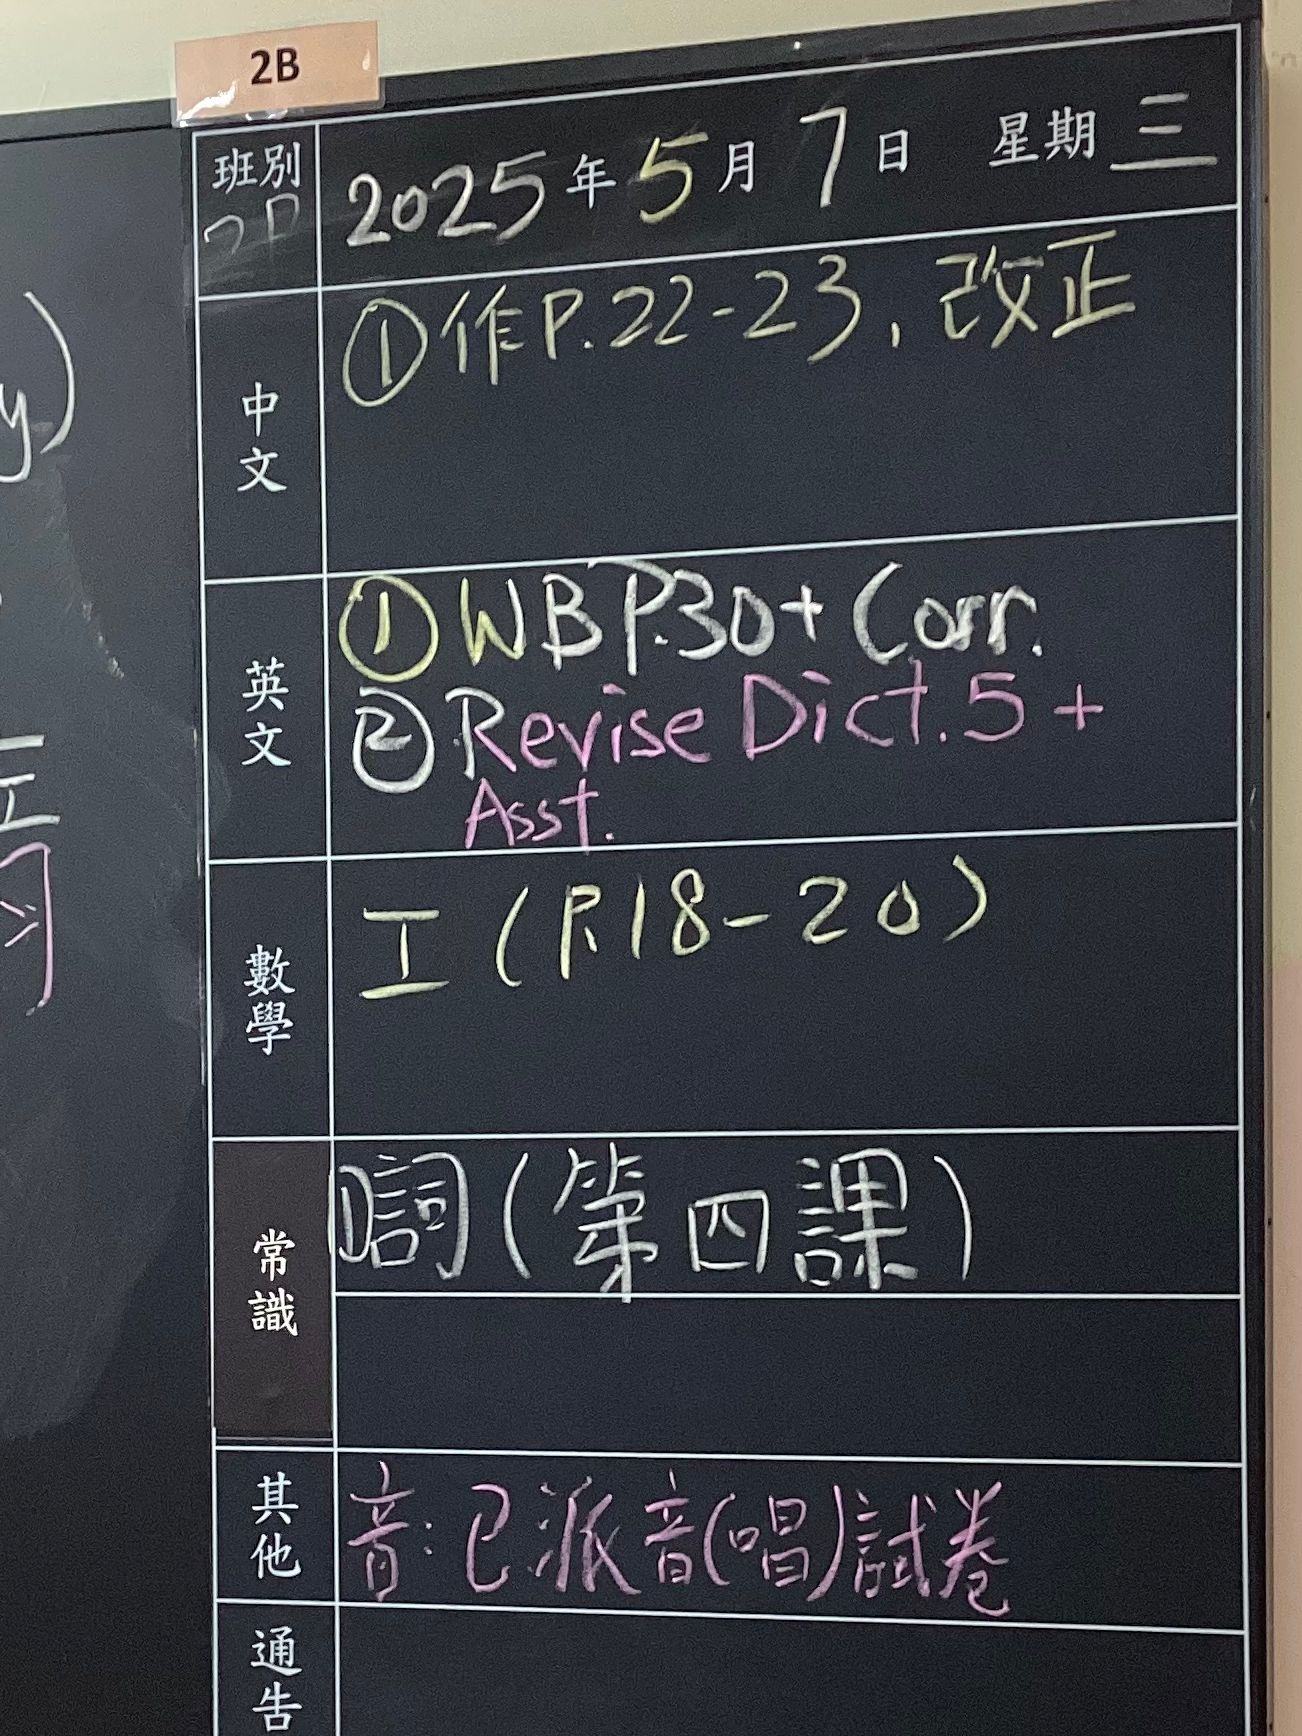 2B
班別 2025年5月7日 星期三
中文 ①作P.22-23, 改正
英文 ①WB P.30+Corr.
②Revise Dict.5+
Asst.
數學 工(P.18-20)
常識 詞(第四課)
其他 音:已派音(唱)試卷
通告